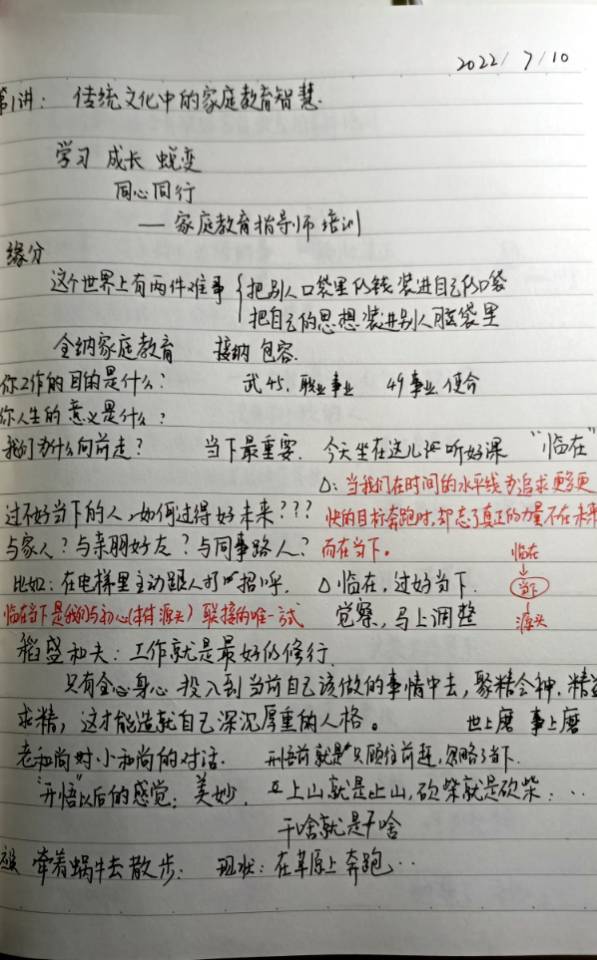 2022/7/10
第1讲: 传统文化中的家庭教育智慧.
学习 成长 蜕变
同心同行
— 家庭教育指导师 培训
缘分
这个世界上有两件难事 { 把别人口袋里的钱装进自己的口袋
把自己的思想装进别人脑袋里
全纳家庭教育 接纳 包容.
你工作的目的是什么? 45. 职业事业 49 事业 使命
你人生的意义是什么?
我们为什么向前走? 当下最重要. 今天坐在这儿 听好课 "临在"
△: 当我们在时间的水平线 追求更多更
过不好当下的人,如何过得好未来??? 快的目标奔跑时,却忘了真正的力量不在未来
与家人?与亲朋好友?与同事路人? 而在当下。 临在
比如:在电梯里主动跟人打招呼. △ 临在,过好当下. 当下
临在当下是我们与初心( 源头)联接的唯一 觉察,马上调整 源头
稻盛和夫:工作就是最好的修行.
只有全心身心投入到当前自己该做的事情中去,聚精会神.精益
求精,这才能造就自己深沉厚重的人格。 世上磨 事上磨
老和尚对小和尚的对话. 开悟前就是只顾往前赶,忽略了当下.
"开悟"以后的感觉:美妙. 上山就是上山,砍柴就是砍柴:...
干啥就是干啥
牵着蜗牛去散步: 现状:在草原上奔跑...